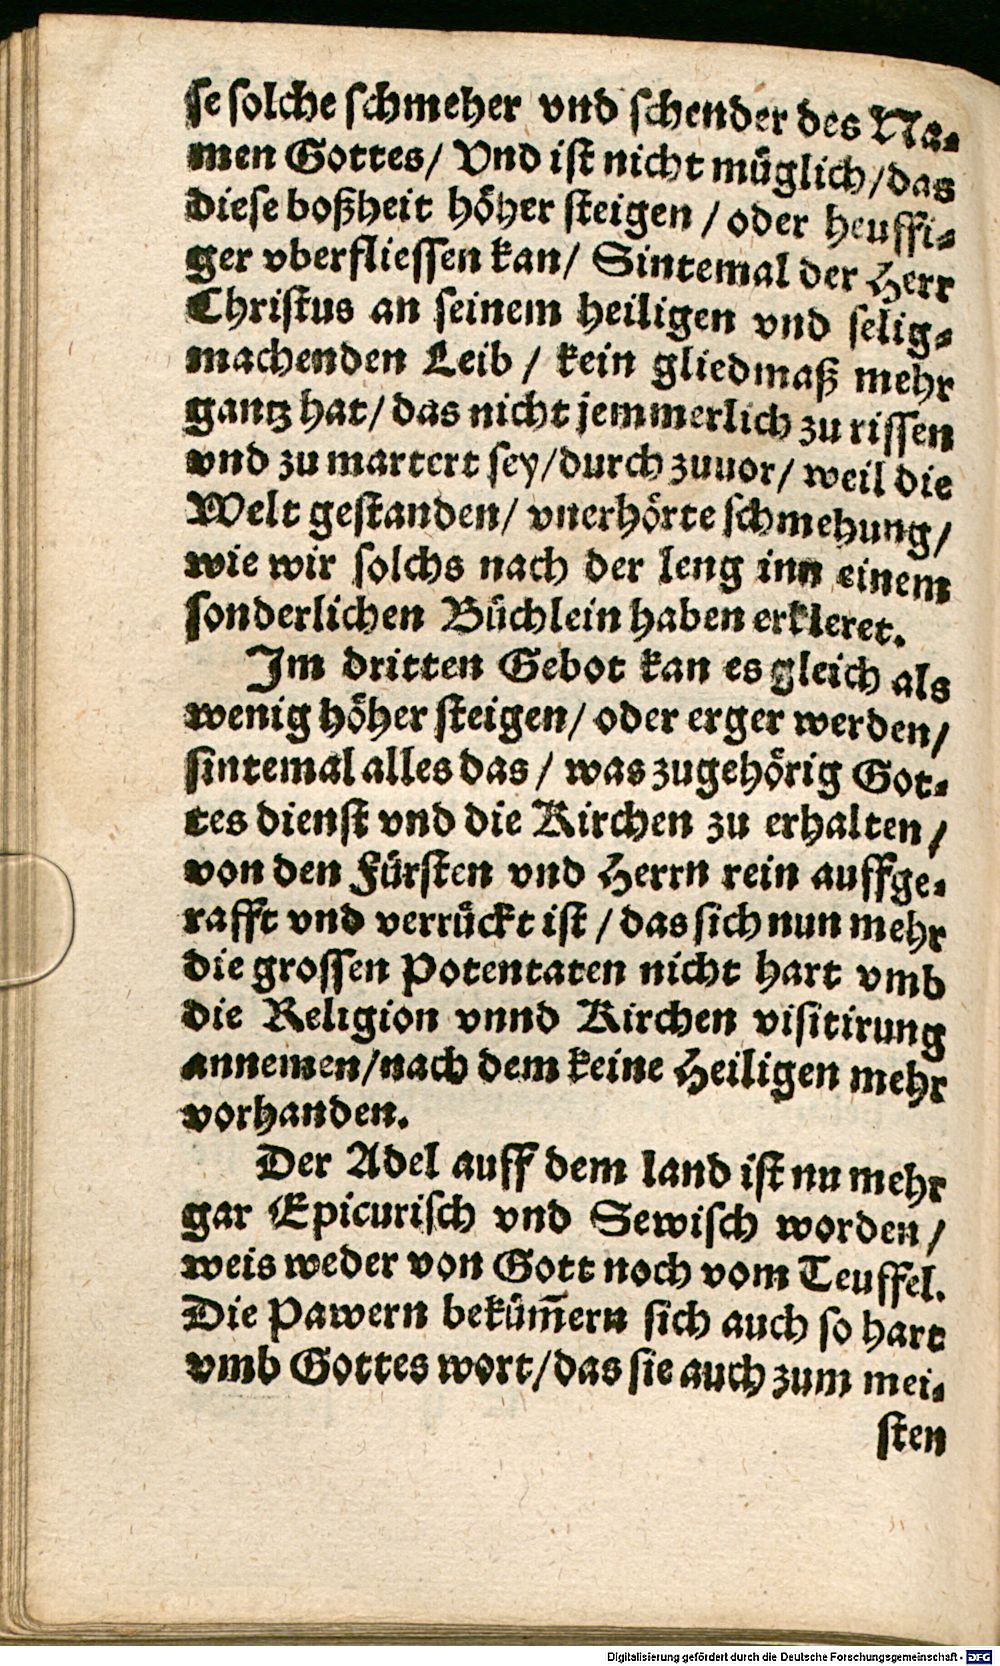 se solche schmeher vnd schender des Na-
men Gottes/ Vnd ist nicht müglich/das
diese boßheit höher steigen / oder heuffi-
ger vberfliessen kan/ Sintemal der Herr
Christus an seinem heiligen vnd selig-
machenden Leib / kein gliedmaß mehr
gantz hat/ das nicht jemmerlich zu rissen
vnd zu martert sey/durch zuuor/ weil die
Welt gestanden/ vnerhörte schmehung/
wie wir solchs nach der leng inn einem
sonderlichen Büchlein haben erkleret.
Im dritten Gebot kan es gleich als
wenig höher steigen/ oder erger werden/
sintemal alles das / was zugehörig Got-
tes dienst vnd die Kirchen zu erhalten /
von den Fürsten vnd Herrn rein auffge-
rafft vnd verrückt ist / das sich nun mehr
die grossen Potentaten nicht hart vmb
die Religion vnnd Kirchen visitirung
annemen/nach dem keine Heiligen mehr
vorhanden.
Der Adel auff dem land ist nu mehr
gar Epicurisch vnd Sewisch worden /
weis weder von Gott noch vom Teuffel.
Die Pawern beküm̃ern sich auch so hart
vmb Gottes wort/das sie auch zum mei-
sten
Digitalisierung gefördert durch die Deutsche Forschungsgemeinschaft - DFG